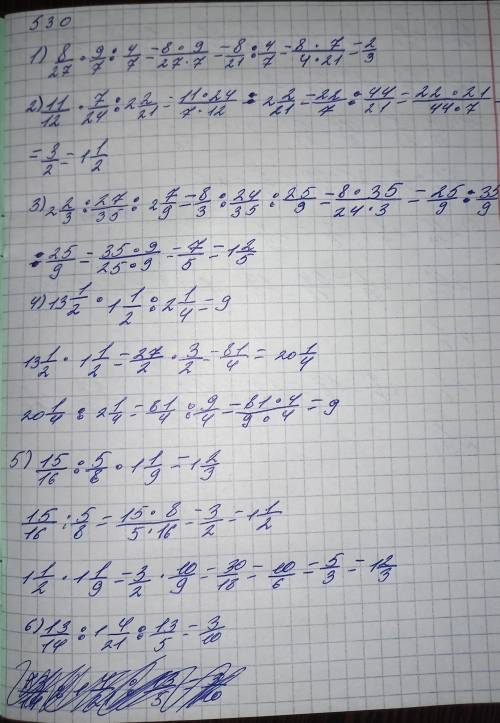 530
1) 8/27 · 9/7 : 4/7 = 8·9/27·7 = 8/21 : 4/7 = 8·7/4·21 = 2/3
2) 11/12 · 7/24 : 2 2/21 = 11·24/7·12 : 2 2/21 = 22/7 : 44/21 = 22·21/44·7 =
= 3/2 = 1 1/2
3) 2 2/3 : 27/35 : 2 7/9 = 8/3 : 24/35 : 25/9 = 8·35/24·3 = 25/9 : 35/9
: 25/9 = 35·9/25·9 = 7/5 = 1 2/5
4) 13 1/2 · 1 1/2 : 2 1/4 = 9
13 1/2 · 1 1/2 = 27/2 · 3/2 = 81/4 = 20 1/4
20 1/4 : 2 1/4 = 81/4 : 9/4 = 81·4/9·4 = 9
5) 15/16 : 5/8 · 1 1/9 = 1 2/3
15/16 : 5/8 = 15·8/5·16 = 3/2 = 1 1/2
1 1/2 · 1 1/9 = 3/2 · 10/9 = 30/18 = 10/6 = 5/3 = 1 2/3
6) 13/14 : 1 4/21 : 13/5 = 3/10